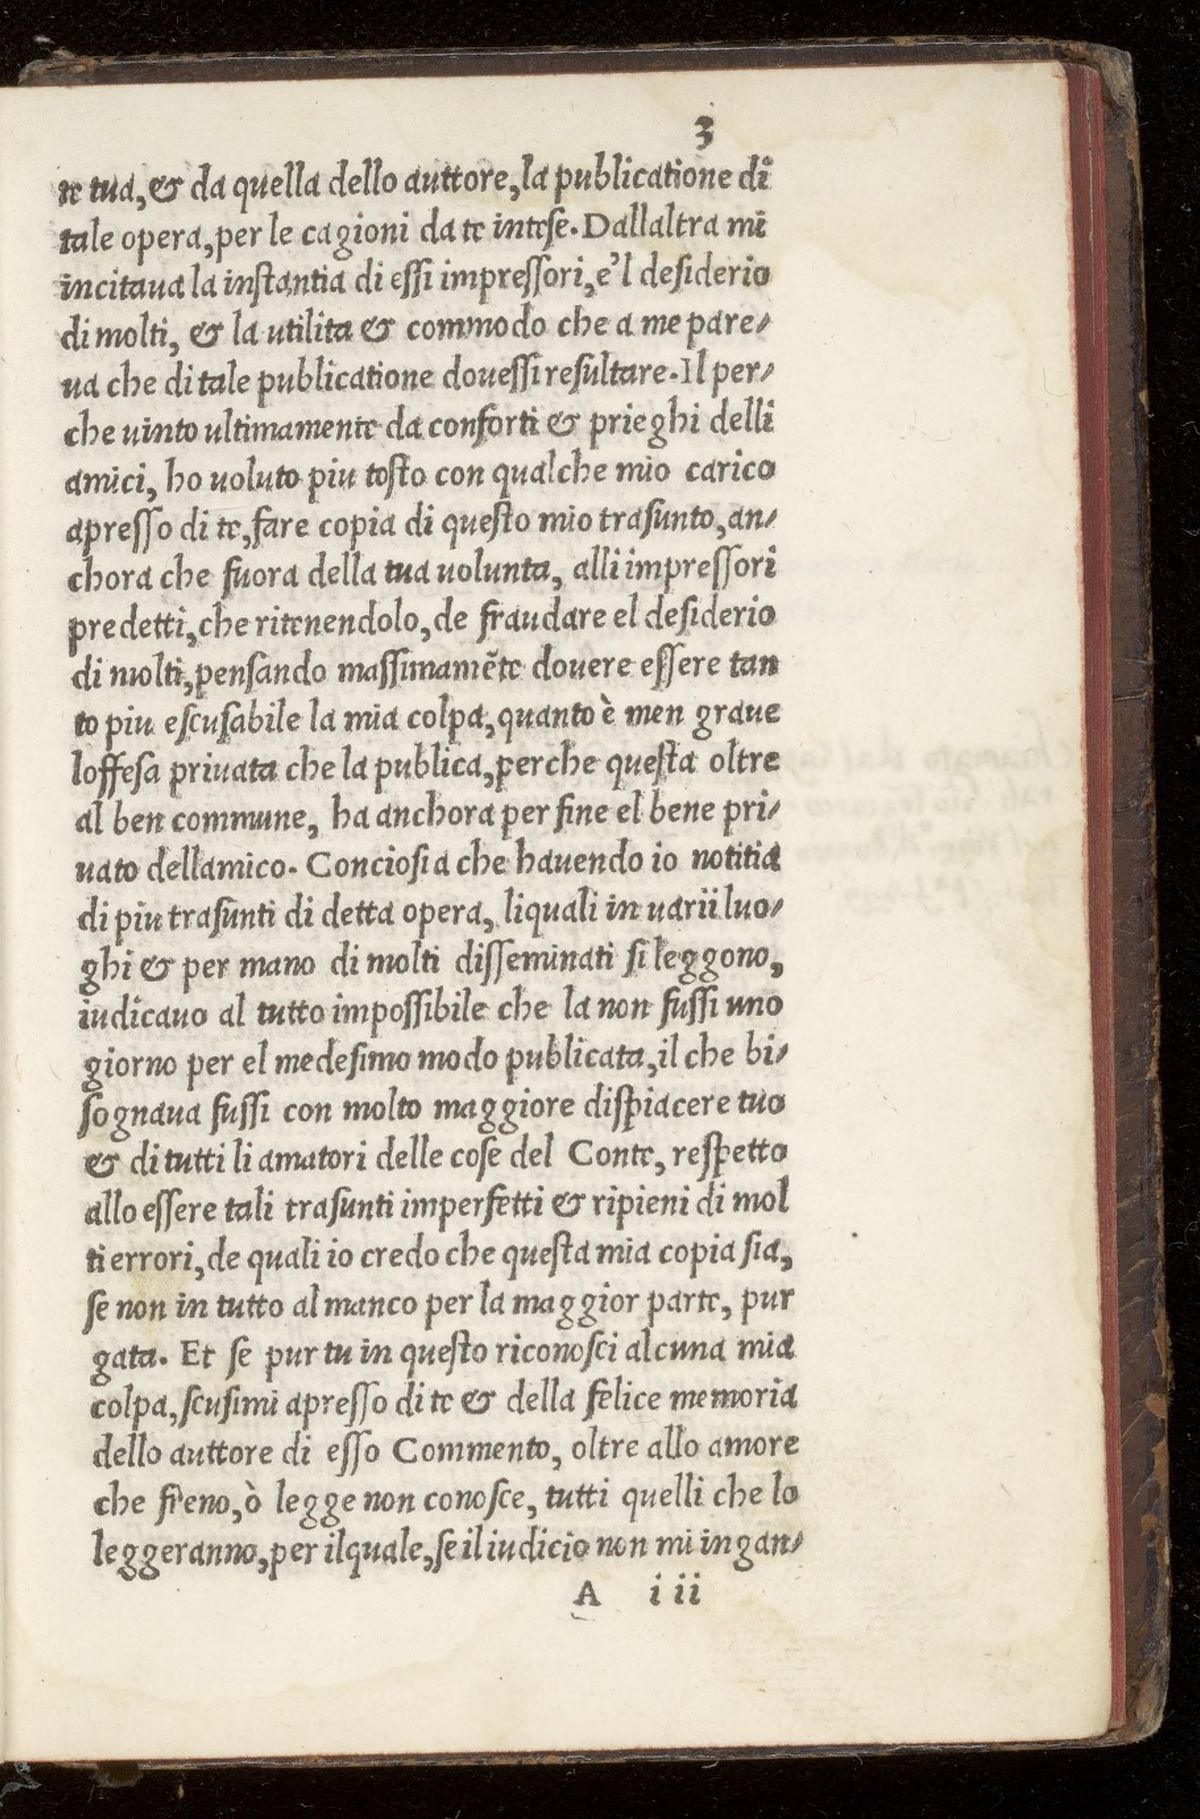 3
te tua, & da quella dello auttore, la publicatione di
tale opera, per le cagioni da te intese. Dallaltra mi
incitaua la instantia di essi impressori, e'l desiderio
di molti, & la utilita & commodo che a me pare/
ua che di tale publicatione douessi resultare. Il per/
che uinto ultimamente da conforti & prieghi delli
amici, ho uoluto piu tosto con qualche mio carico
apresso di te, fare copia di questo mio trasunto, an/
chora che fuora della tua uolunta, alli impressori
predetti, che ritenendolo, de fraudare el desiderio
di molti, pensando massimamẽte douere essere tan
to piu escusabile la mia colpa, quanto è men graue
loffesa priuata che la publica, perche questa oltre
al ben commune, ha anchora per fine el bene pri/
uato dellamico. Conciosia che hauendo io notitia
di piu trasunti di detta opera, liquali in uarii luo/
ghi & per mano di molti disseminati si leggono,
iudicauo al tutto impossibile che la non fussi uno
giorno per el medesimo modo publicata, il che bi/
sognaua fussi con molto maggiore dispiacere tuo
& di tutti li amatori delle cose del Conte, respetto
allo essere tali trasunti imperfetti & ripieni di mol
ti errori, de quali io credo che questa mia copia sia,
se non in tutto al manco per la maggior parte, pur
gata. Et se pur tu in questo riconosci alcuna mia
colpa, scusimi apresso di te & della felice memoria
dello auttore di esso Commento, oltre allo amore
che freno, ò legge non conosce, tutti quelli che lo
leggeranno, per ilquale, se il iudicio non mi ingan/
A iii